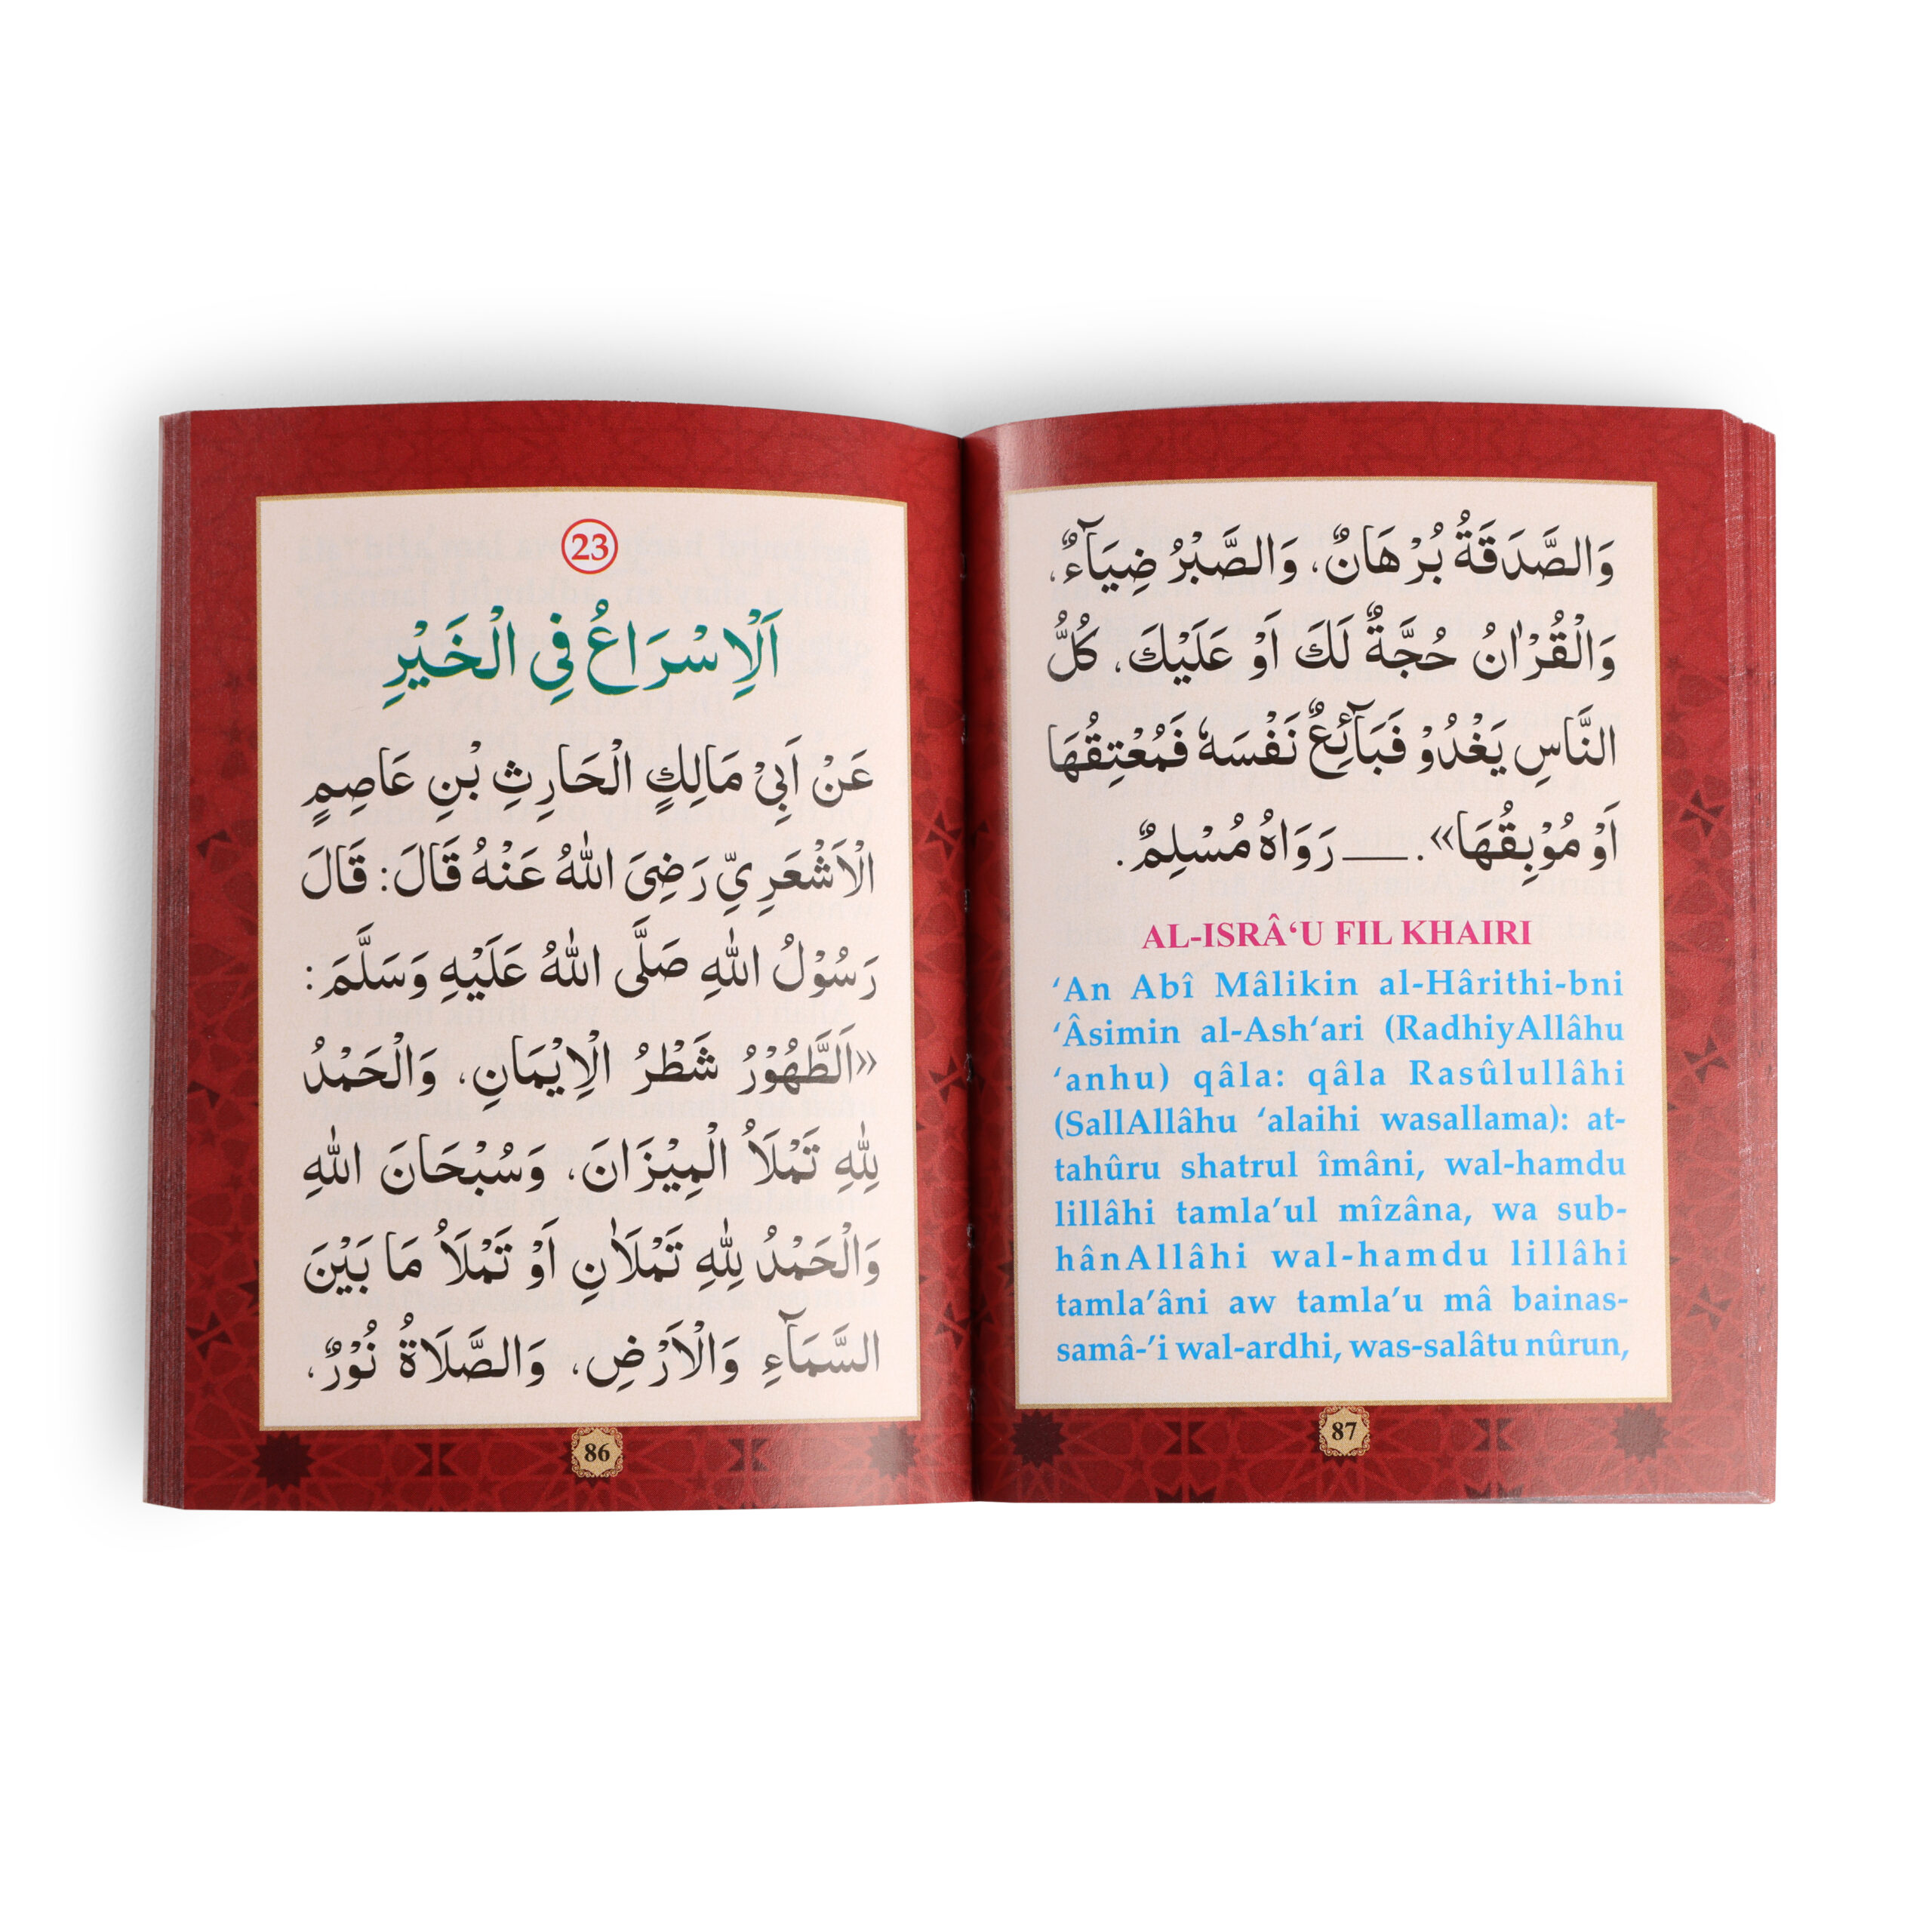 23
اَلْاِسْرَاعُ فِي الْخَيْرِ
عَنْ اَبِيْ مَالِكٍ الْحَارِثِ بْنِ عَاصِمٍ
الْاَشْعَرِيِّ رَضِىَ اللّٰهُ عَنْهُ قَالَ: قَالَ
رَسُوْلُ اللّٰهِ صَلَّى اللّٰهُ عَلَيْهِ وَسَلَّمَ:
«اَلطَّهُوْرُ شَطْرُ الْاِيْمَانِ، وَالْحَمْدُ
لِلّٰهِ تَمْلَاُ الْمِيْزَانَ، وَسُبْحَانَ اللّٰهِ
وَالْحَمْدُ لِلّٰهِ تَمْلَاٰنِ اَوْ تَمْلَاُ مَا بَيْنَ
السَّمَآءِ وَالْاَرْضِ، وَالصَّلَاةُ نُوْرٌ،
86
وَالصَّدَقَةُ بُرْهَانٌ، وَالصَّبْرُ ضِيَآءٌ،
وَالْقُرْاٰنُ حُجَّةٌ لَكَ اَوْ عَلَيْكَ، كُلُّ
النَّاسِ يَغْدُوْ فَبَآئِعٌ نَفْسَهٗ فَمُعْتِقُهَا
اَوْ مُوْبِقُهَا». ___ رَوَاهُ مُسْلِمٌ.
AL-ISRÂ‘U FIL KHAIRI
‘An Abî Mâlikin al-Hârithi-bni
‘Âsimin al-Ash‘ari (RadhiyAllâhu
‘anhu) qâla: qâla Rasûlullâhi
(SallAllâhu ‘alaihi wasallama): at-
tahûru shatrul îmâni, wal-hamdu
lillâhi tamla’ul mîzâna, wa sub-
hânAllâhi wal-hamdu lillâhi
tamla’âni aw tamla’u mâ bainas-
samâ-’i wal-ardhi, was-salâtu nûrun,
87